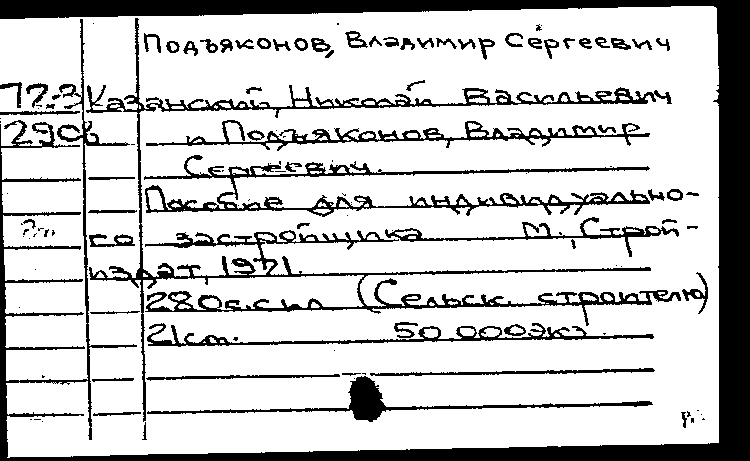 Подъяконов, Владимир Сергеевич
72-3 Казанский, Николай Васильевич
2908 и Подъяконов, Владимир
Сергеевич.
Пособие для индивидуально-
го застройщика М., Строй-
издат, 1971.
280с. с ил (Сельск. строителю)
21 см. 50 000 экз